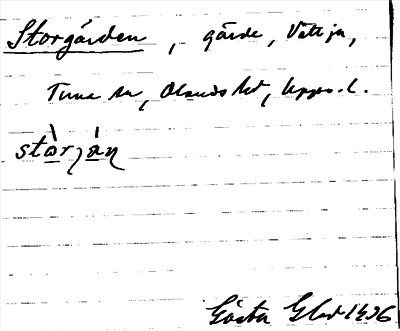 Storgården, gärde, Vattjn,
Tuna sn, Olands hd, Upps. l.
stòrȷán
Gösta Glad 1936.